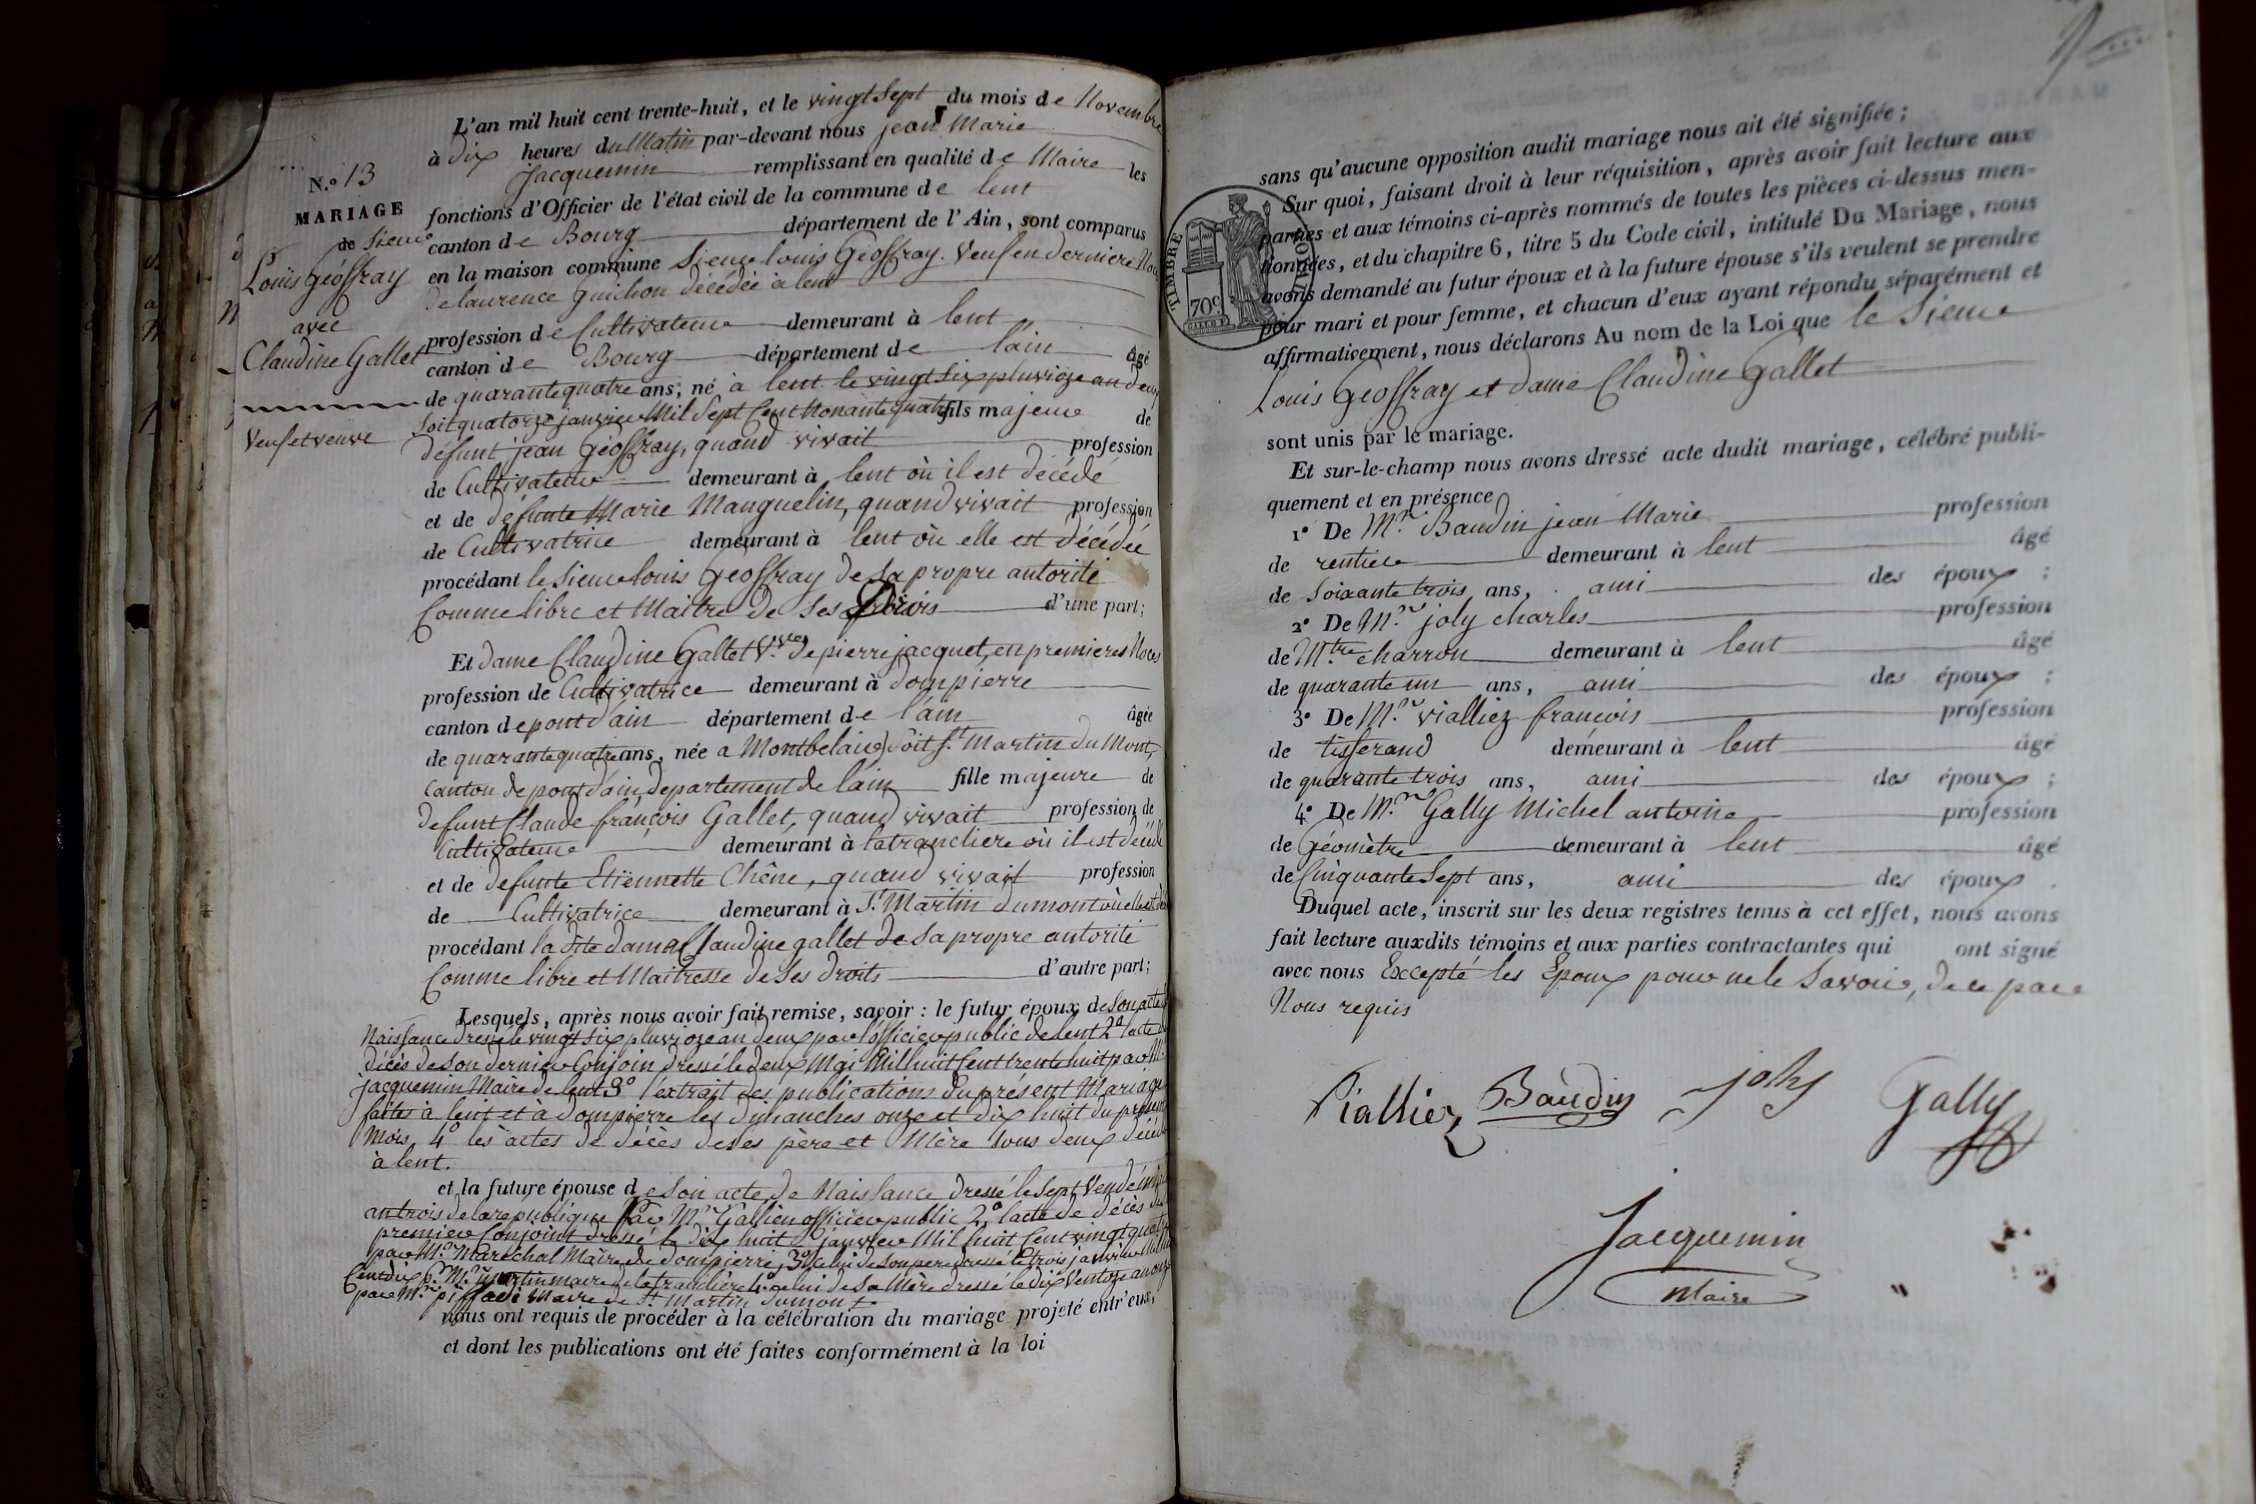 N.º 13
MARIAGE
de Sieur
Louis Géoffray
avec
Claudine Gallet
Veuf et veuve
L'an mil huit cent trente-huit, et le vingt Sept du mois de Novembre
à Dix heures du Matin par-devant nous jean Marie
Jacquemin remplissant en qualité de Maire les
fonctions d'Officier de l'état civil de la commune de lent
canton de Bourg département de l'Ain, sont comparus
en la maison commune Sieur louis Géoffray. Veuf en derniere
de laurence Guichon décédée à lent
profession de Cultivateur demeurant à lent
canton de Bourg département de l'ain âgé
de quarante quatre ans, né à lent le vingt Six pluvioze an deux
Soit quatorze janvier Mil Sept Cent Nonante quatre fils majeur de
défunt jean Géoffray, quand vivait profession
de Cultivateur demeurant à lent où il est décédé
et de défunte Marie Manguelin, quand vivait profession
de Cultivatrice demeurant à lent où elle est décédée
procédant le Sieur louis Géoffray de Sa propre autorité
Comme libre et Maitre de Ses Droits d'une part;
Et dame Claudine Gallet V.ve de pierre jacquet, en premieres Noces
profession de Cultivatrice demeurant à dompierre
canton de pont d'ain département de l'ain âgée
de quarante quatre ans, née a Montbelair Soit S.t Martin du Mont,
Canton de pont d'ain, departement de l'ain fille majeure de
defunt Claude françois Gallet, quand vivait profession de
Cultivateur demeurant à latranchere où il est décédé
et de defunte Etiënnette Chêne, quand vivait profession
de Cultivatrice demeurant à S.t Martin dumont où elle est
procédant la dite dame Claudine gallet de Sa propre autorité
Comme libre et Maitresse de Ses droits d'autre part;
Lesquels, après nous avoir fait remise, savoir : le futur époux de Son acte
Naissance dressé le vingt Six pluvioze an deux par l'officier public de lent 2º l'acte
décès de Son dernier Conjoin dressé le deux Mai Mil huit Cent trente huit par M.
jacquemin Maire de lent 3º l'extrait des publications du présent Mariage
faites à lent et à dompierre les dimanches onze et dix huit du présent
Mois, 4º les actes de décès de Ses père et Mère tous deux
à lent.
et la future épouse de Son acte de Naissance dressé le Sept Vendémiaire
an trois de la republique Par M.r Gallien officier public 2º l'acte de décès de
premier Conjoint dressé le dix huit janvier Mil huit Cent vingt quatre
par M.r Maréchal Maire de dompierre, 3º Celui de Son pere dressé le trois janvier
Cent dix p. M.r Martin maire de la tranclière 4º celui de Sa Mère dressé le dix Ventoze an onze
par M.r Maire de S.t Martin dumont
nous ont requis de procéder à la célébration du mariage projeté entr'eux,
et dont les publications ont été faites conformément à la loi
TIMBRE ROYAL
70 C
sans qu'aucune opposition audit mariage nous ait été signifiée;
Sur quoi, faisant droit à leur réquisition, après avoir fait lecture aux
parties et aux témoins ci-après nommés de toutes les pièces ci-dessus men-
tionnées, et du chapitre 6, titre 5 du Code civil, intitulé Du Mariage, nous
avons demandé au futur époux et à la future épouse s'ils veulent se prendre
pour mari et pour femme, et chacun d'eux ayant répondu séparément et
affirmativement, nous déclarons Au nom de la Loi que le Sieur
Louis Géoffray et dame Claudine Gallet
sont unis par le mariage.
Et sur-le-champ nous avons dressé acte dudit mariage, célébré publi-
quement et en présence
1º De M.r Baudin jean Marie profession
de rentier demeurant à lent âgé
de Soixante trois ans, ami des époux ;
2º De M.r joly charles profession
de M.tre charron demeurant à lent âgé
de quarante un ans, ami des époux ;
3º De M.r vialliez françois profession
de tisserand demeurant à lent âgé
de quarante trois ans, ami des époux ;
4º De M.r Gally Michel antoine profession
de Géomètre demeurant à lent âgé
de Cinquante Sept ans, ami des époux .
Duquel acte, inscrit sur les deux registres tenus à cet effet, nous avons
fait lecture auxdits témoins et aux parties contractantes qui ont signé
avec nous Excepté les Epoux pour ne le Savoir, de ce par
Nous requis
Vialliez Baudin Joly Gally
Jacquemin
Maire